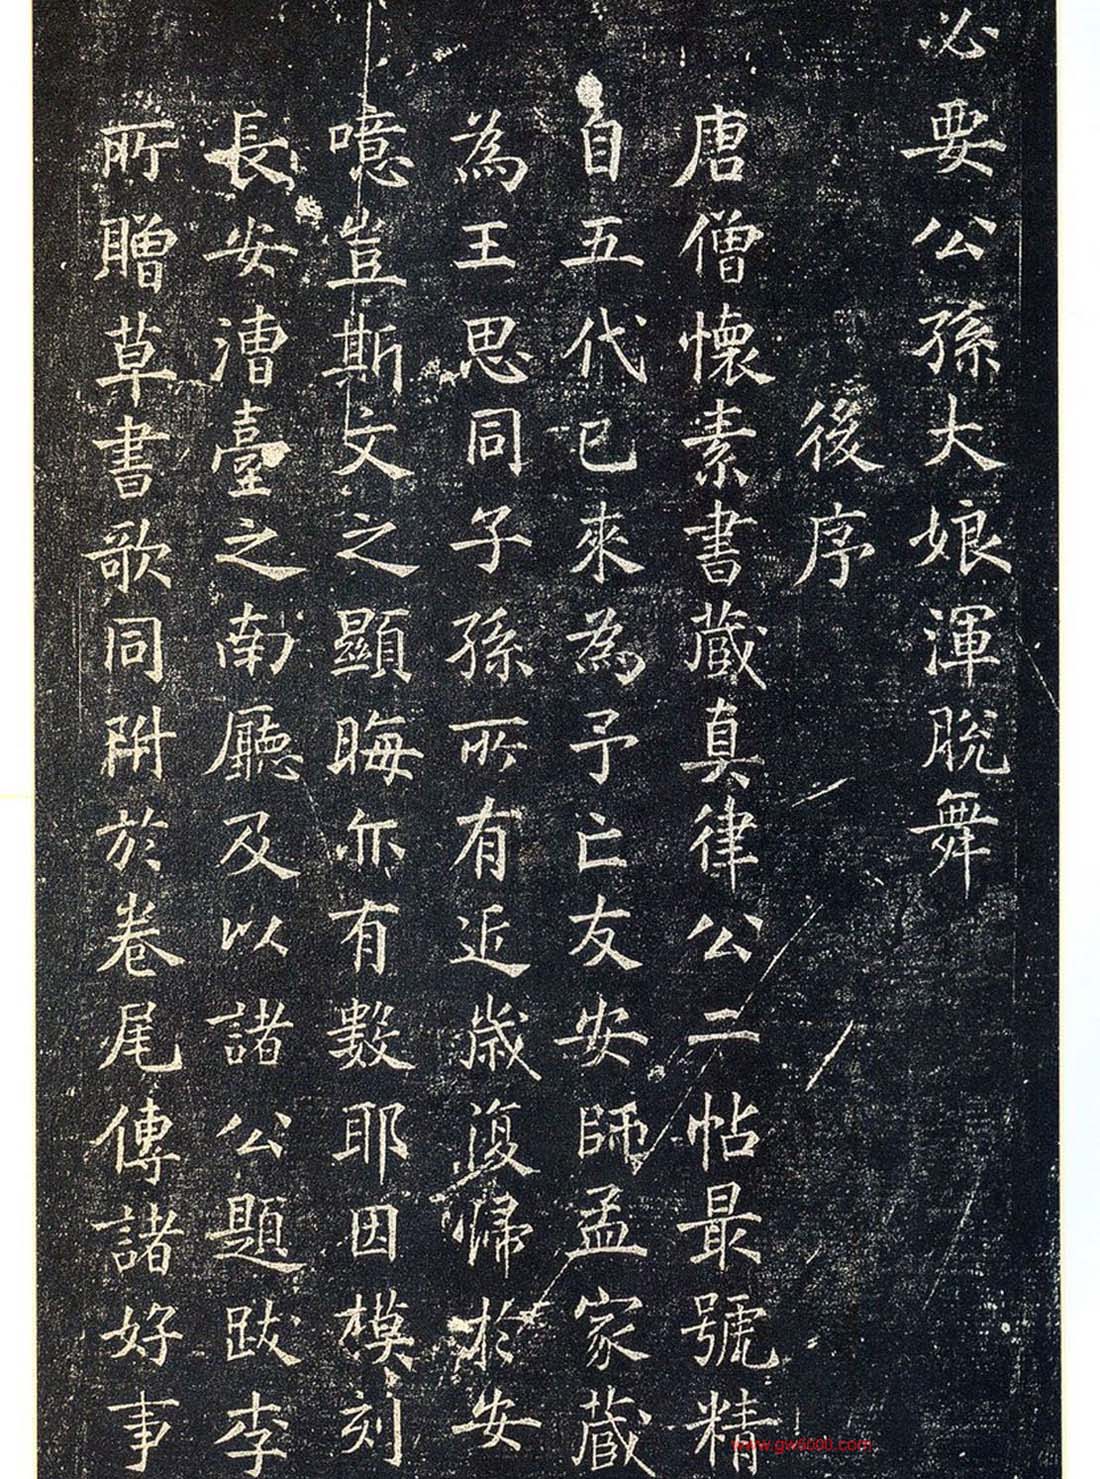 必要公孫大娘渾脫舞
後序
唐僧懷素書藏真律公二帖最號精
自五代已來為予亡友安師孟家藏
為王思同子孫所有近歲復歸於安
噫豈斯文之顯晦亦有數耶因模刻
長安漕臺之南廳及以諸公題跋李
所贈草書歌同附於卷尾傳諸好事
www.gw5000.com